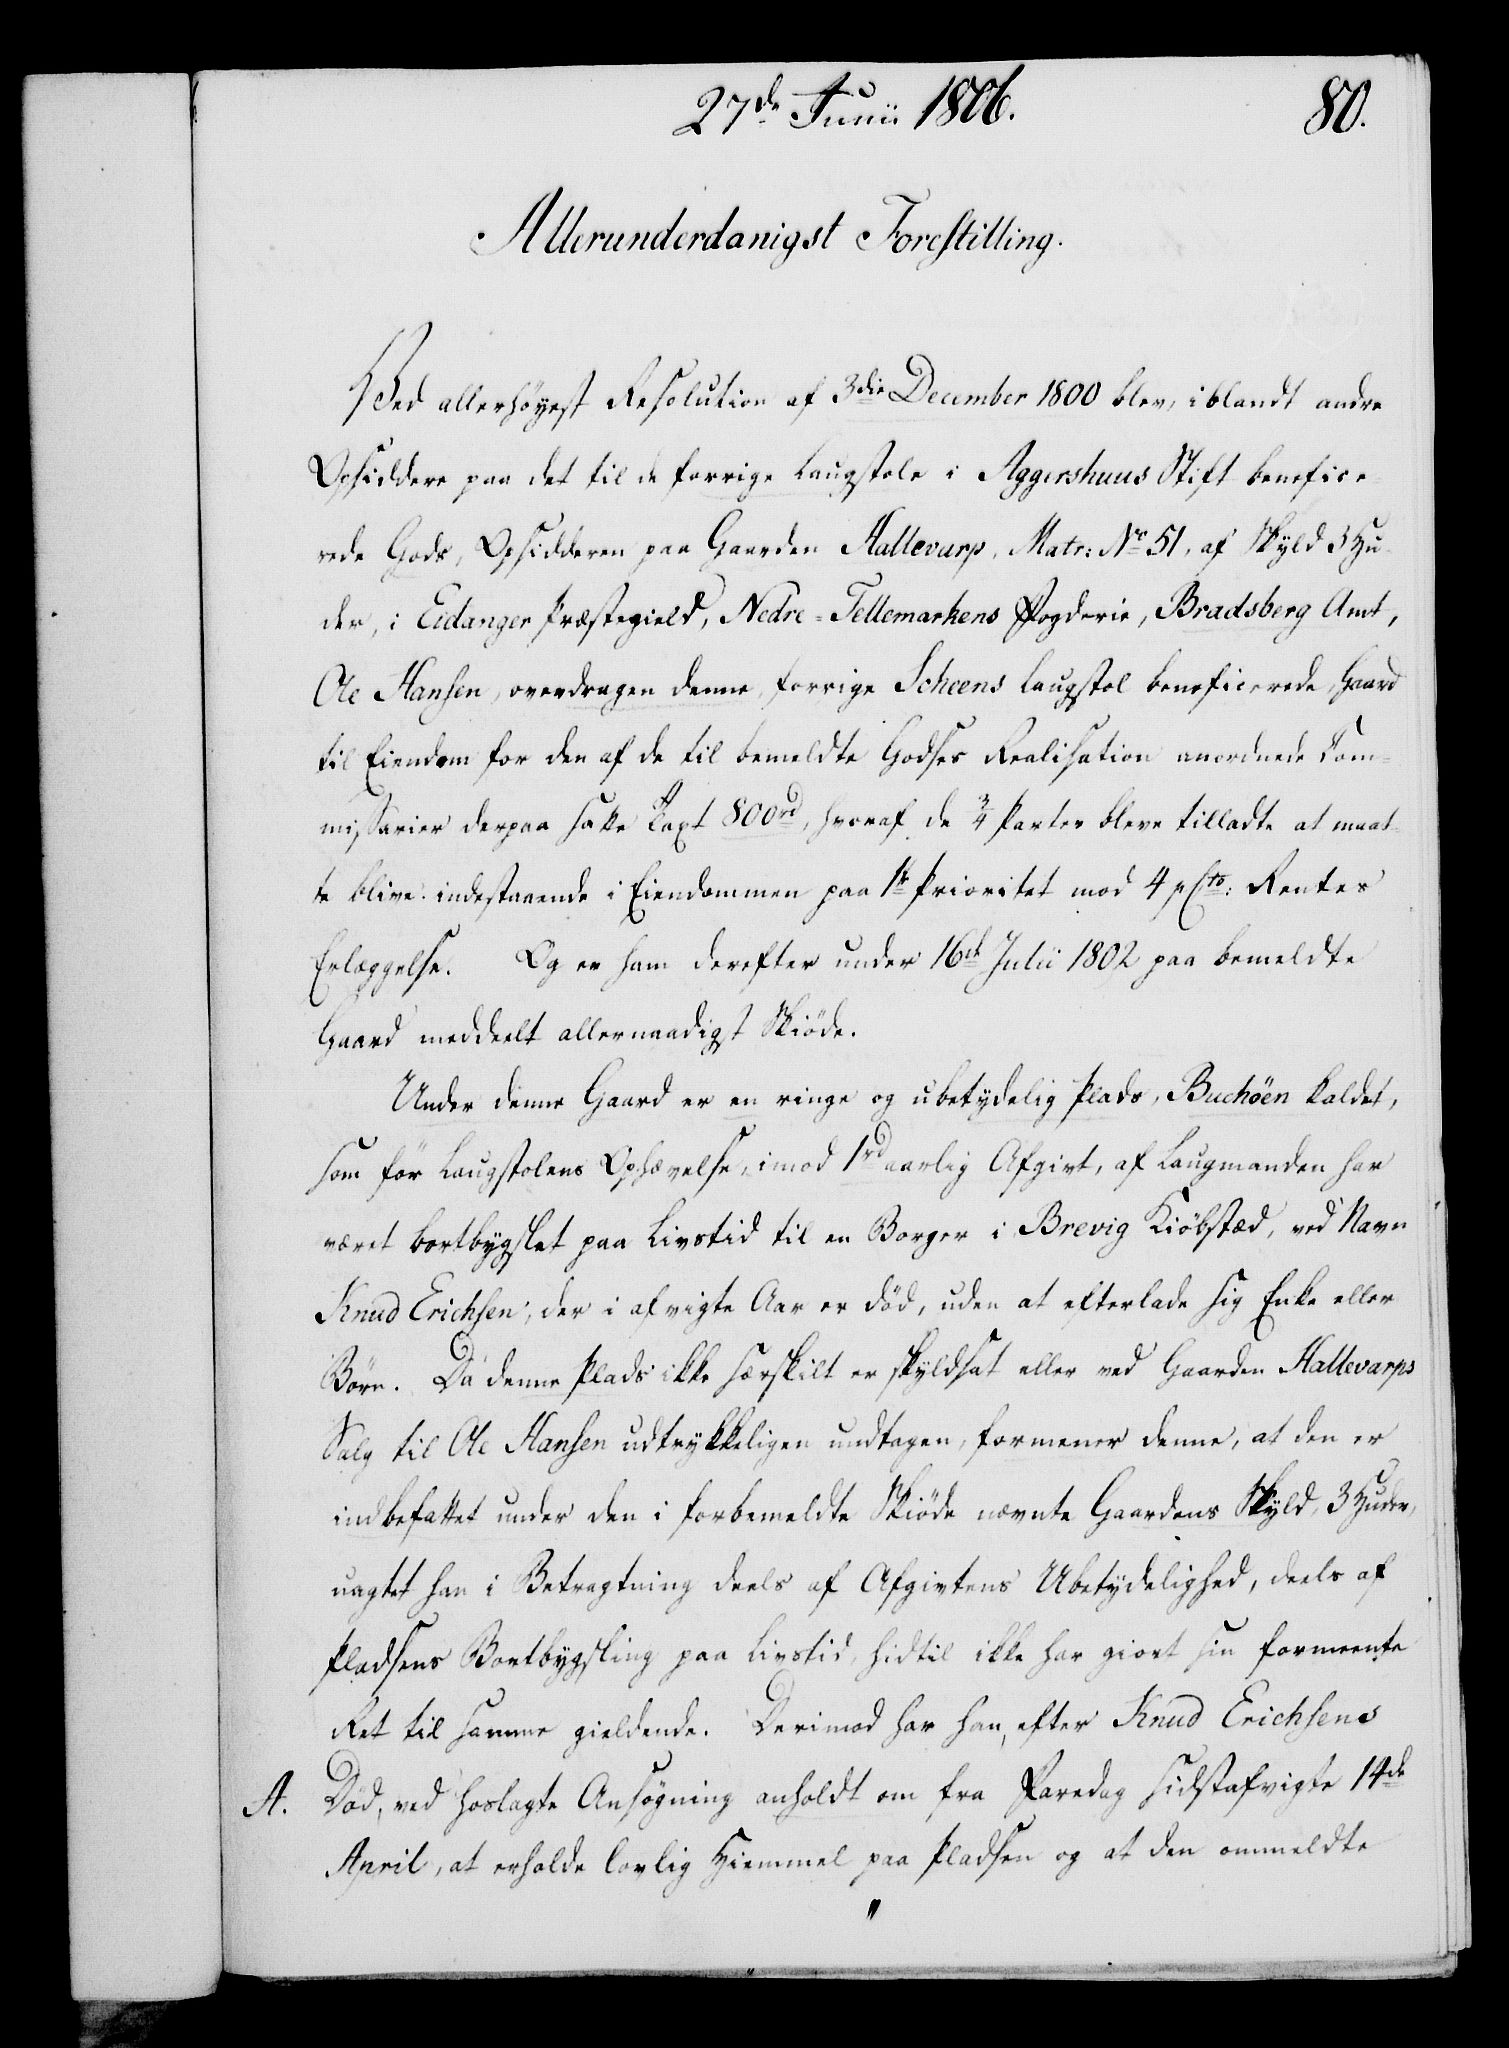 27de Junii 1806.
80.
Allerunderdanigst Forestilling.
Ved allerhöyest Resolution af 3die December 1800 blev, iblandt andre
Opsiddere paa det til de forrige Laugstole i Aggershuus Stift benefice-
rede Gods, Opsidderen paa Gaarden Hallevarp, Matr: No 51, af Skyld 3 Hu-
der, i Eidanger Præstegield, Nedre-Tellemarkens Fogderie, Bradsberg Amt,
Ole Hansen, overdragen denne, forrige Scheens Laugstol beneficerede, Gaard
til Eiendom for den af de til bemeldte Godses Realisation anordnede Com-
missarier derpaa satte Taxt 800rd, hvoraf de 3/4 Parter bleve tilladte at maat-
te blive indestaaende i Eiendommen paa 1te Prioritet mod 4 pCto: Rentes
Erlæggelse. Og er ham derefter under 16de Julii 1802 paa bemeldte
Gaard meddeelt allernaadigst Skiöde.
Under denne Gaard er en ringe og ubetydelig Plads, Buchöen kaldet,
som för Laugstolens Ophævelse, imod 1rd aarlig Afgivt, af Laugmanden har
været bortbygslet paa Livstid til en Borger i Brevig Kiöbstæd, ved Navn
Knud Erichsen, der i afvigte Aar er död, uden at efterlade sig Enke eller
Börn. Da denne Plads ikke særskilt er skyldsat eller ved Gaarden Hallevarps
Salg til Ole Hansen udtrykkeligen undtagen, formener denne, at den er
indbefattet under den i forbemeldte Skiöde nævnte Gaardens Skyld, 3 Huder,
uagtet han i Betragtning deels af Afgivtens Ubetydelighed, deels af
Pladsens Bortbygsling paa Livstid, hidtil ikke har giort sin formeente
Ret til samme gieldende. Derimod har han, efter Knud Erichsens
A. Död, ved hoslagte Ansögning anholdt om fra Faredag sidstafvigte 14de
April, at erholde lovlig Hiemmel paa Pladsen og at den ommeldte
"